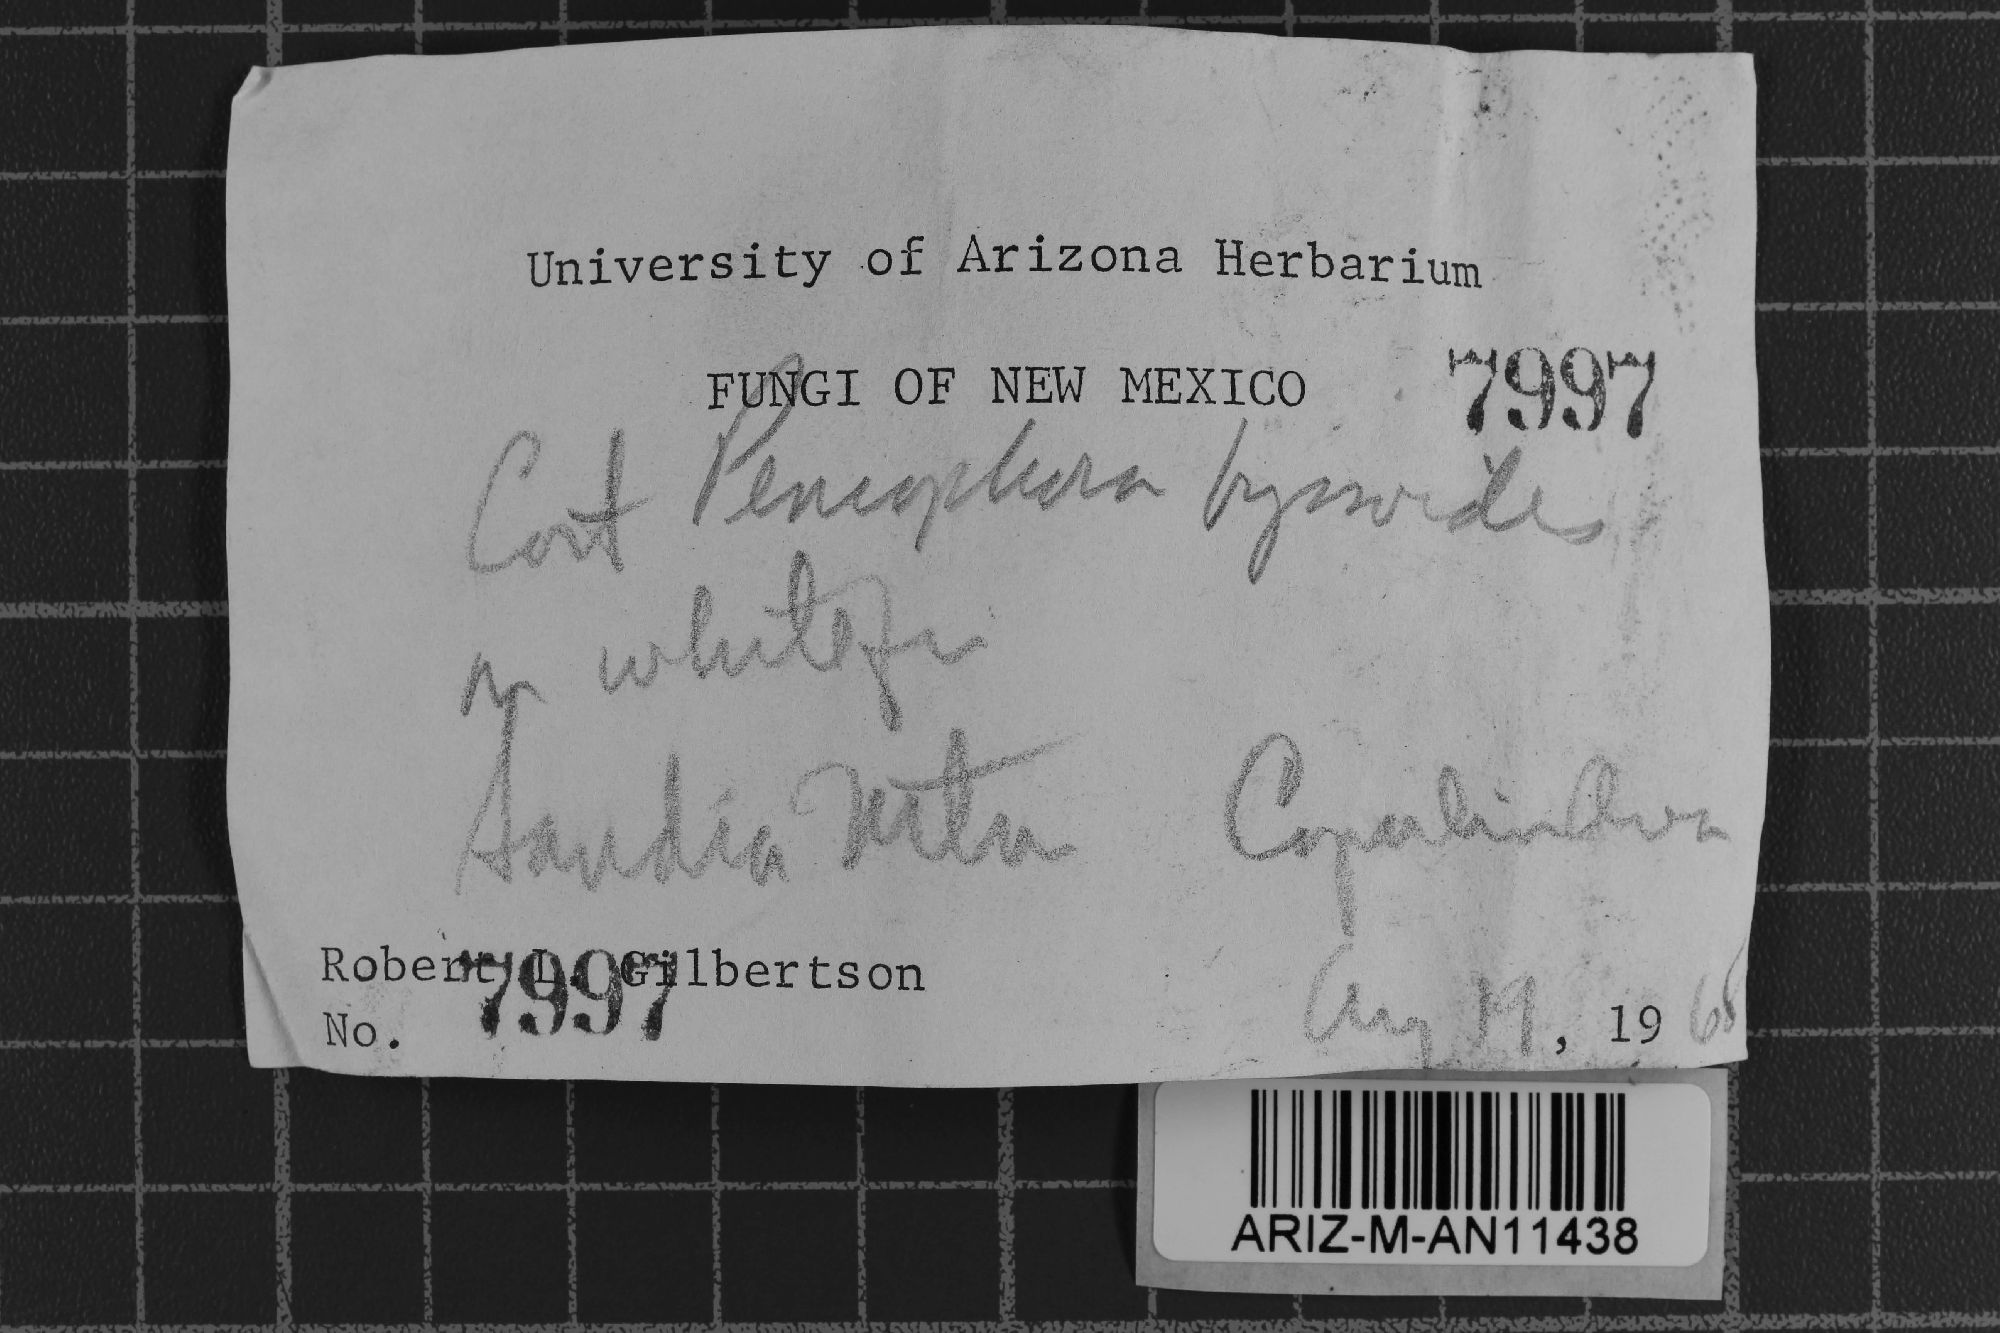 University of Arizona Herbarium
FUNGI OF NEW MEXICO
7997
Cort Peniophora byssoides
on white fir
Sandia Mtn
Robert L. Gilbertson
No. 7997
Aug 19, 1968
ARIZ-M-AN11438